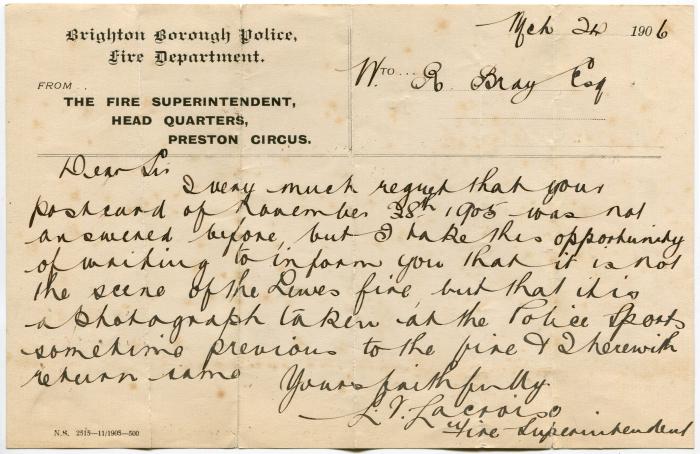 Brighton Borough Police,
Fire Department.
FROM...
THE FIRE SUPERINTENDENT,
HEAD QUARTERS,
PRESTON CIRCUS.
Mch 24 1906
TO...
W. R. Bray Esq
Dear Sir
I very much regret that your
postcard of November 28th 1905 was not
answered before, but I take this opportunity
of writing to inform you that it is not
the scene of the Lewes fire, but that it is
a photograph taken at the Police Sports
sometime previous to the fire & I herewith
return same
Yours faithfully
L. Lacroix
Fire Superintendent
N.S. 2515—11/1905—500